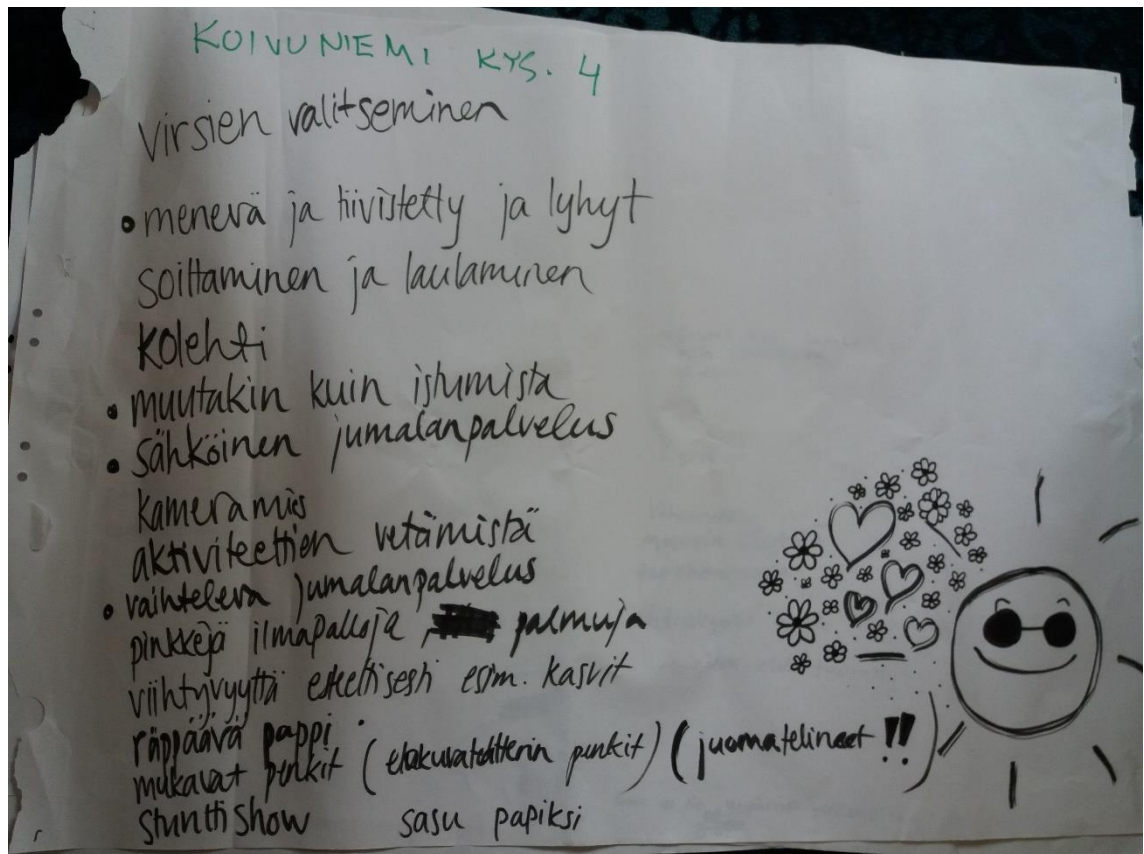 KOIVUNIEMI KYS. 4
virsien valitseminen
• menevä ja tiivistetty ja lyhyt
soittaminen ja laulaminen
kolehti
• muutakin kuin istumista
• sähköinen jumalanpalvelus
kameramies
aktiviteettien vetämistä
• vaihteleva jumalanpalvelus
pinkkejä ilmapalloja, palmuja
viihtyvyyttä esteettisesti esim. kasvit
räppäävä pappi
mukavat penkit (elokuvateatterin penkit) (juomatelineet !!)
stunttishow sasu papiksi